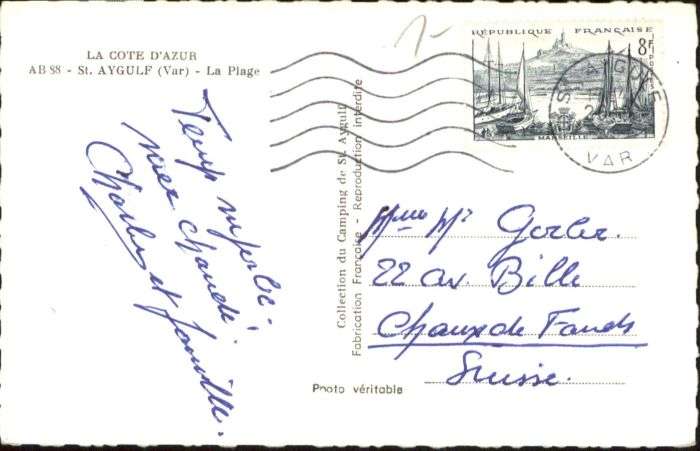 LA COTE D'AZUR
AB 88 - St. AYGULF (Var) - La Plage
Temps superbe.
mer chaude.
Charles et famille.
Collection du Camping de St. Aygulf
Fabrication Française - Reproduction interdite
Photo véritable
1-
RÉPUBLIQUE FRANÇAISE
8F
POSTES
MARSEILLE
ST AYGULF
VAR
Mme Mr Gerber.
22 av. Bille
Chaux de Fonds
Suisse.